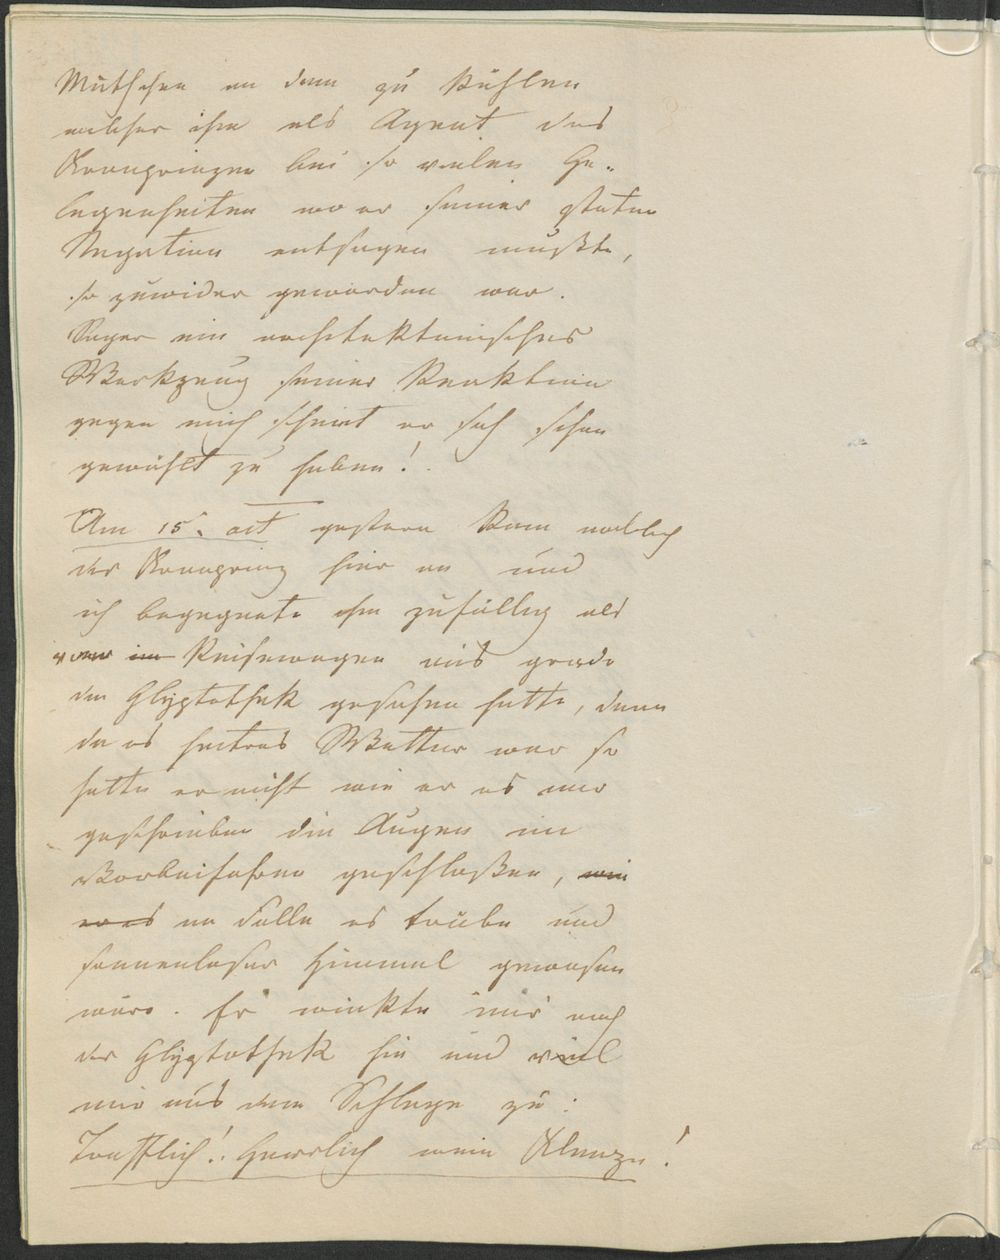 Müthchen an dem zu kühlen
welcher ihm als Agent des
Kronprinzen bei so vielen Ge-
legenheiten wo er seiner steten
Negation entsagen mußte,
so zuwider geworden war.
ein architektonisches
Werkzeug seiner Reaktion
gegen mich scheint er sich schon
gewählt zu haben!
Am 15. oct gestern kam endlich
der Kronprinz hier an und
ich begegnete ihm zufällig als
er im Reisewagen eis grade
die Glyptothek gesehen hatte, denn
da es heitres Wetter war so
hatte er nicht wie er es mir
geschrieben die Augen im
Vorbeifahren geschloßen, wie
es im Falle es trübe und
sonnenloser Himmel gewesen
wäre. Er winkte mir nach
der Glyptothek hin und rief
mir aus dem Schlage zu:
Trefflich! Herrlich mein Klenze!